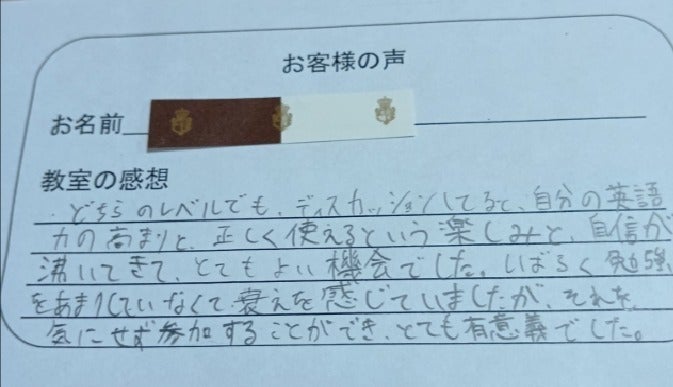 お客様の声
お名前
教室の感想
どちらのレベルでも、ディスカッションしてると、自分の英語
力の高まりと、正しく使えるという楽しみと、自信が
沸いてきて、とてもよい機会でした。しばらく勉強
をあまりしていなくて衰えを感じていましたが、それを
気にせず参加することができ、とても有意義でした。